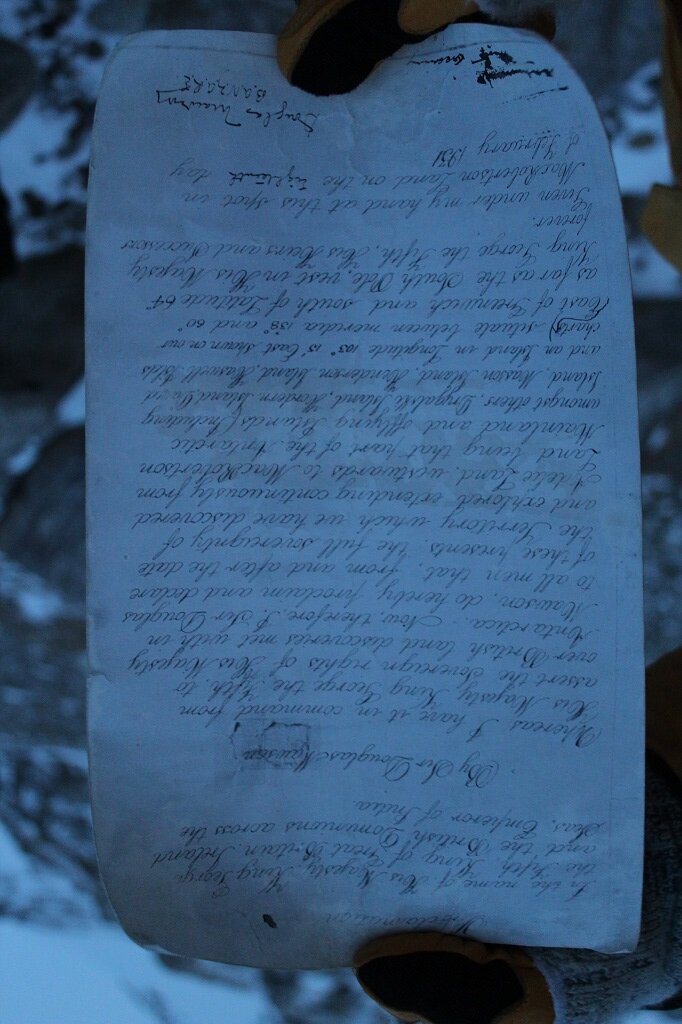 Proclamation
In the name of His Majesty King George
the Fifth, King of Great Britain, Ireland
and the British Dominions across the
Seas, Emperor of India.
By Sir Douglas Mawson
Whereas I have it in command from
His Majesty King George the Fifth, to
assert the Sovereign rights of His Majesty
over British land discoveries met with in
Antarctica. Now, therefore, I, Sir Douglas
Mawson, do herby proclaim and declare
to all men that, from and after the date
of these presents, the full sovereignty of
the Territory which we have discovered
and explored extending continuously from
Adelie Land, westwards to MacRobertson
Land being that part of the Antarctic
Mainland and offlying Islands (including
amongst others, Drygalski Island, Hordern Island, David
Island, Masson Island, Henderson Island, Haswell Islds
and an Island in Longitude 103° 15' East shown on our
charts) situate between meridia 138° and 60°
East of Greenwich and south of Latitude 64°
as far as the South Pole vest in His Majesty
King George the Fifth, His Heirs and Successors
forever.
Given under my hand at this spot in
MacRobertson Land on the Eighteenth day
of February 1931
Douglas Mawson
BANZARE